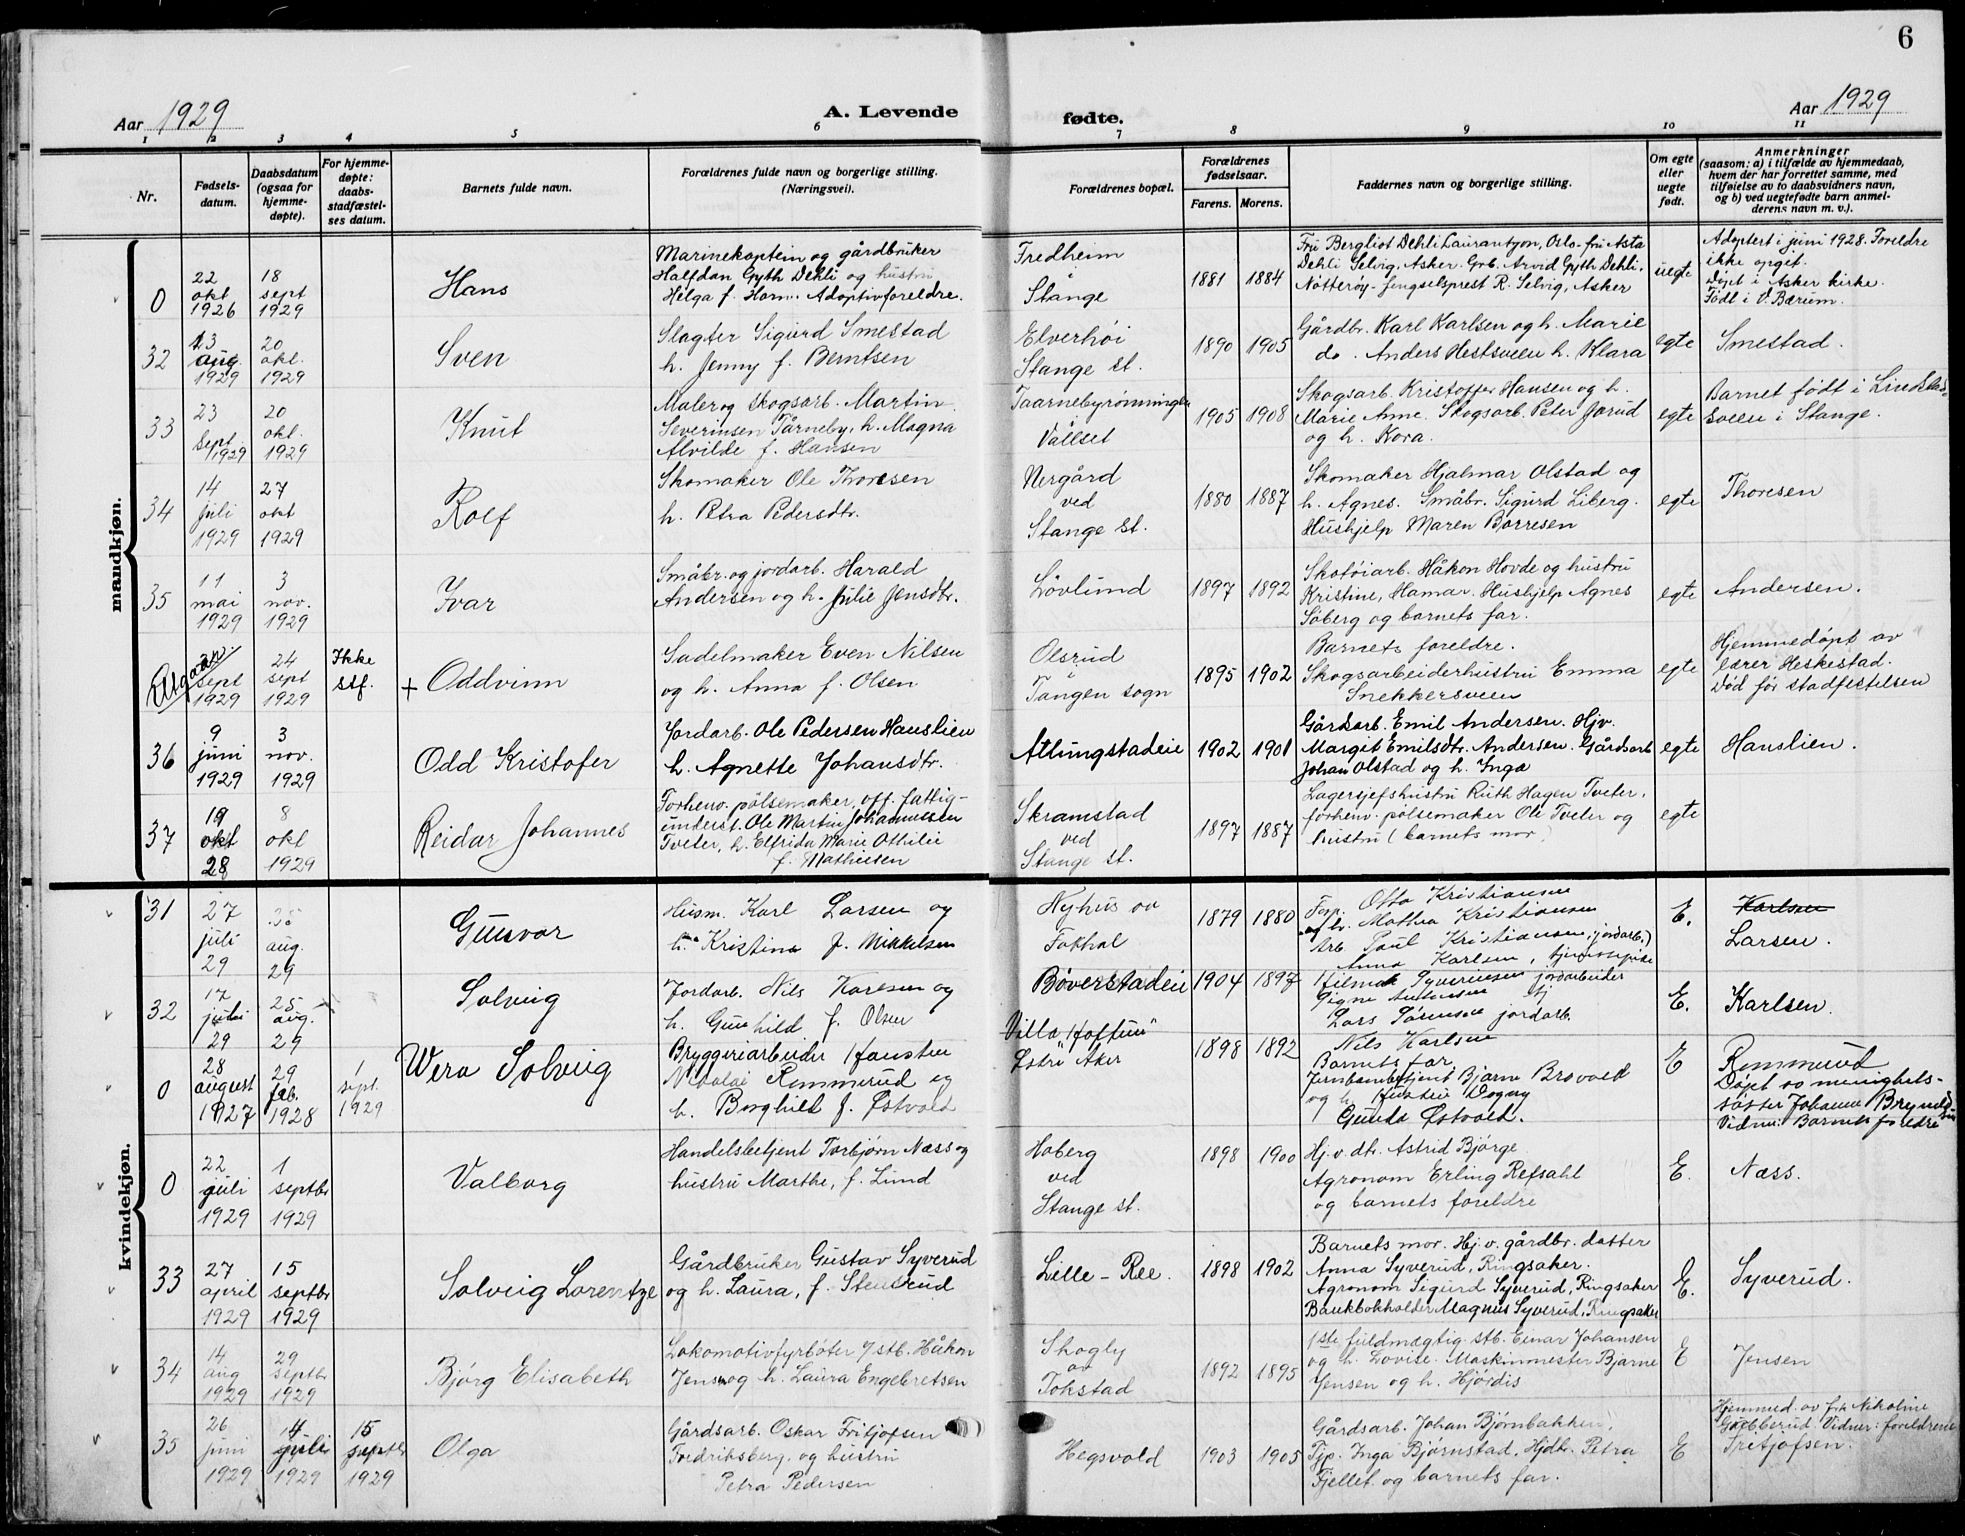 6
Aar 1929
A. Levende
fødte.
Aar 1929
1 2 3 4 5 6 7 8 9 10 11
Nr.
Fødsels-
datum.
Daabsdatum
(ogsaa for
hjemme-
døpte).
For hjemme-
døpte:
daabs-
stadfæstel-
ses datum.
Barnets fulde navn.
Forældrenes fulde navn og borgerlige stilling.
(Næringsvei).
Forældrenes bopæl.
Forældrenes
fødselsaar.
Farens. Morens.
Faddernes navn og borgerlige stilling.
Om egte
eller
uegte
født.
Anmerkninger
(saasom: a) i tilfælde av hjemmedaab,
hvem der har forrettet samme, med
tilføielse av to daabsvidners navn,
og b) ved uegtefødte barn anmel-
derens navn m. v.).
mandkjøn.
0
22
okt
1926
18
sept
1929
Hans
Marinekaptein og gårdbruker
Halfdan Gyth Dehli og hustru
Helga f. Horn. Adoptivforeldre.
Fredheim
i
Stange
1881 1884
Fru Bergliot Dehli Laurantzon, Oslo. fru Asta
Dehli Selvig, Asker. Grb. Arvid Gyth Dehli,
Nøtterøy. fengselsprest R. Selvig, Asker
uegte
Adoptert i juni 1928. Foreldre
ikke opgit.
Døpt i Asker kirke.
Født i V. Bærum.
32
13
aug.
1929
20
okt.
1929
Sven
Slagter Sigurd Smestad
h. Jenny f. Berntsen
Elverhøi
Stange st.
1890 1905
Gårdbr. Karl Karlsen og h. Marie
do. Anders Hestsveen h. Klara
egte
Smestad.
33
23
sept
1929
20
okt.
1929
Knut
Maler og skogsarb. Martin
Severinsen Tårneby, h. Magna
Alvilde f. Hansen
Taarnebyrønningen
Vallset
1905 1908
Skogsarb. Kristoffer Hansen og h.
Marie Anne. Skogsarb. Peter Jørud
og h. Kora.
egte
Barnet født i
sveen i Stange.
34
14
juli
1929
27
okt
1929
Rolf
Skomaker Ole Thoresen
h. Petra Pedersdtr.
Nergård
ved
Stange st.
1880 1887
Skomaker Hjalmar Olstad og
h. Agnes. Småbr. Sigurd Liberg.
Hushjelp Maren Børresen
egte
Thoresen
35
11
mai
1929
3
nov.
1929
Ivar
Småbr. og jordarb. Harald
Andersen og h. Julie Jensdtr.
Løvlund
1897 1892
Skotøiarb. Håkon Hovde og hustru
Kristine, Hamar. Hushjelp Agnes
Søberg og barnets far.
egte
Andersen.
Utgaar.
sept
1929
24
sept
1929
Ikke
stf.
+ Oddvinn
Sadelmaker Even Nilsen
og h. Anna f. Olsen
Olsrud
Tangen sogn
1895 1902
Barnets foreldre.
Skogsarbeiderhustru Emma
Snekkersveen
egte
Hjemmedøpt av
lærer Heskestad.
Død før stadfestelsen
36
9
juni
1929
3
nov.
1929
Odd Kristofer
Jordarb. Ole Pedersen Hanslien
h. Agnette Johansdtr.
Atlungstadeie
1902 1901
Gårdsarb. Emil Andersen. Hjv.
Margit Emilsdtr. Andersen. Gårdsarb
Johan Olstad og h. Inga
egte
Hanslien.
37
19
okt
28
8
okt
1929
Reidar Johannes
Forhenv. pølsemaker, off. fattig-
underst. Ole Martin Johannessen
Tveter, h. Elfrida Marie Othilie
f. Mathiesen
Skramstad
ved
Stange st.
1897 1887
Lagersjefshustru Ruth Hagen Tveter.
forhenv. pølsemaker Ole Tveter og
hustru (barnets mor)
egte
kvindekjøn.
31
27
juli
29
aug.
29
Gunvor
Husm. Karl Larsen og
h. Kristina f. Mikkelsen
Nyhus av
Tokhol
1879 1880
Fosp. Otto Kristiansen
og h. Mathea Kristiansen
Arb. Paul Kristiansen, (jordarb.)
Anna Karlsen, tjenestepike
E.
Karlsen
Larsen.
32
17
juli
29
25
aug.
29
Solveig
Jordarb. Nils Karlsen og
h. Gunhild f. Olsen
Bøverstadeie
1904 1897
Hilmar Syversen jordarbeider
Signe Antonsen
Lars Sørensen jordarb.
Nils Karlsen
E.
Karlsen.
0
28
august
1927
29
feb.
1928
1
sept.
1929
Wera Solveig
Bryggeriarbeider
Nikolai Rommerud og
h. Borghild f. Østvold
Villa "Hoftun"
Østre Aker
1898 1892
Barnets far,
Jernbanebetjent Bjarne Brovold
og h. Dagny
Gunda Østvold.
E
Rommerud
Døpt av menighets-
søster Johanne Bryn
Vidner: Barnets foreldre
0
22
juli
1929
1
septbr
1929
Valborg
Handelsbetjent Torbjørn Næss og
hustru Marthe, f. Lund
Hoberg
ved
Stange st.
1898 1900
Hj.v. dtr. Astrid Bjørge
Agronom Erling Refsahl
og barnets foreldre
E.
Næss.
33
27
april
1929
15
septbr
1929
Solveig Lorentze
Gårdbruker Gustav Syverud
og h. Laura, f. Stensrud
Lille-Ree.
1898 1902
Barnets mor. Hj.v. gårdbr. datter
Anna Syverud, Ringsaker.
Agronom Sigurd Syverud, Ringsaker
Bankbokholder Magnus Syverud, Ringsaker
E.
Syverud.
34
14
aug
1929
29
septbr
1929
Bjørg Elisabeth
Lokomotivfyrbøter v/stb. Håkon
Jensen og h. Laura Engebretsen
Skogly
av
Tokstad
1892 1895
1ste fuldmægtig stb. Einar Johansen
og h. Lovise. Maskinmester Bjarne
Jensen og h. Hjørdis
E
Jensen
35
26
juni
1929
14
juli
1929
15
septbr
1929
Olga
Gårdsarb. Oskar Fritjofsen
Fredriksberg, og hustru
Petra Pedersen
Hegsvold
1903 1905
Gårdsarb. Johan Bjørnbakken,
Tjp. Inga Bjørnstad. Hjdtr. Petra
Fjellet. og barnets far.
E
Hjemmed. av frk Nikoline
Gubberud. Vidner: foreldrene
Fretjofsen.